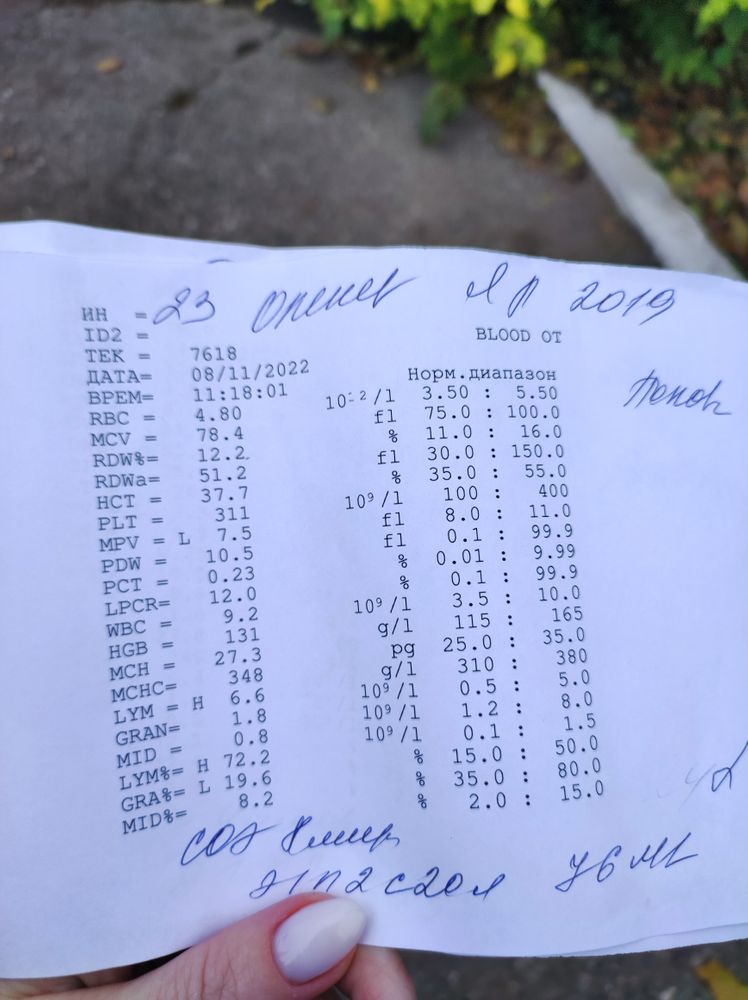 ИН = 23 2019
ID2 =
BLOOD OT
ТЕК = 7618
ДАТА= 08/11/2022
ВРЕМ= 11:18:01 Норм.диапазон
RBC = 4.80 10¹²/l 3.50 : 5.50
MCV = 78.4 fl 75.0 : 100.0
RDW%= 12.2 % 11.0 : 16.0
RDWa= 51.2 fl 30.0 : 150.0
HCT = 37.7 % 35.0 : 55.0
PLT = 311 10⁹/l 100 : 400
MPV = L 7.5 fl 8.0 : 11.0
PDW = 10.5 fl 0.1 : 99.9
PCT = 0.23 % 0.01 : 9.99
LPCR= 12.0 % 0.1 : 99.9
WBC = 9.2 10⁹/l 3.5 : 10.0
HGB = 131 g/l 115 : 165
MCH = 27.3 pg 25.0 : 35.0
MCHC= 348 g/l 310 : 380
LYM = H 6.6 10⁹/l 0.5 : 5.0
GRAN= 1.8 10⁹/l 1.2 : 8.0
MID = 0.8 10⁹/l 0.1 : 1.5
LYM%= H 72.2 % 15.0 : 50.0
GRA%= L 19.6 % 35.0 : 80.0
MID%= 8.2 % 2.0 : 15.0
СОЭ 8
э1п2с20л